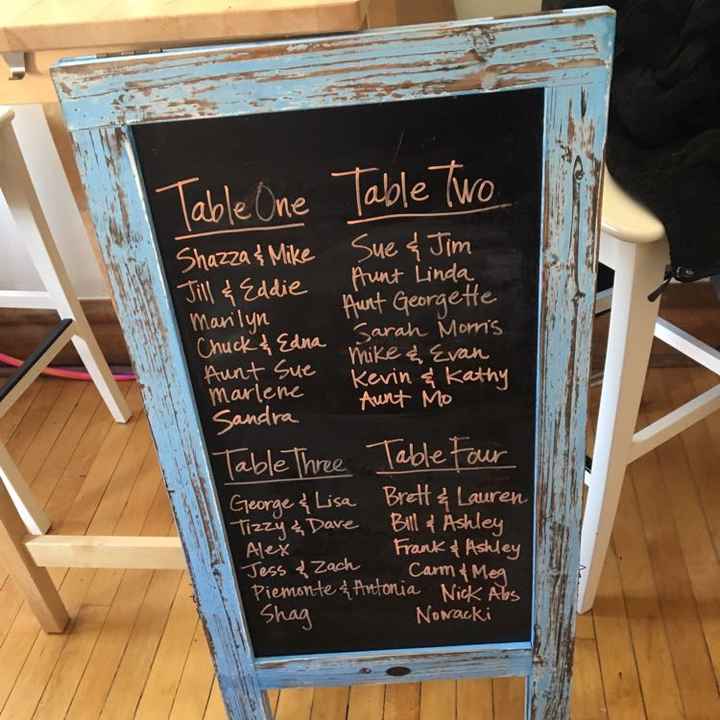 Table One
Shazza & Mike
Jill & Eddie
Marilyn
Chuck & Edna
Aunt Sue
Marlene
Sandra
Table Two
Sue & Jim
Aunt Linda
Aunt Georgette
Sarah Morris
Mike & Evan
Kevin & Kathy
Aunt Mo
Table Three
George & Lisa
Tizzy & Dave
Alex
Jess & Zach
Piemonte & Antonia
Shag
Table Four
Brett & Lauren
Bill & Ashley
Frank & Ashley
Carm & Meg
Nick Abs
Nowacki